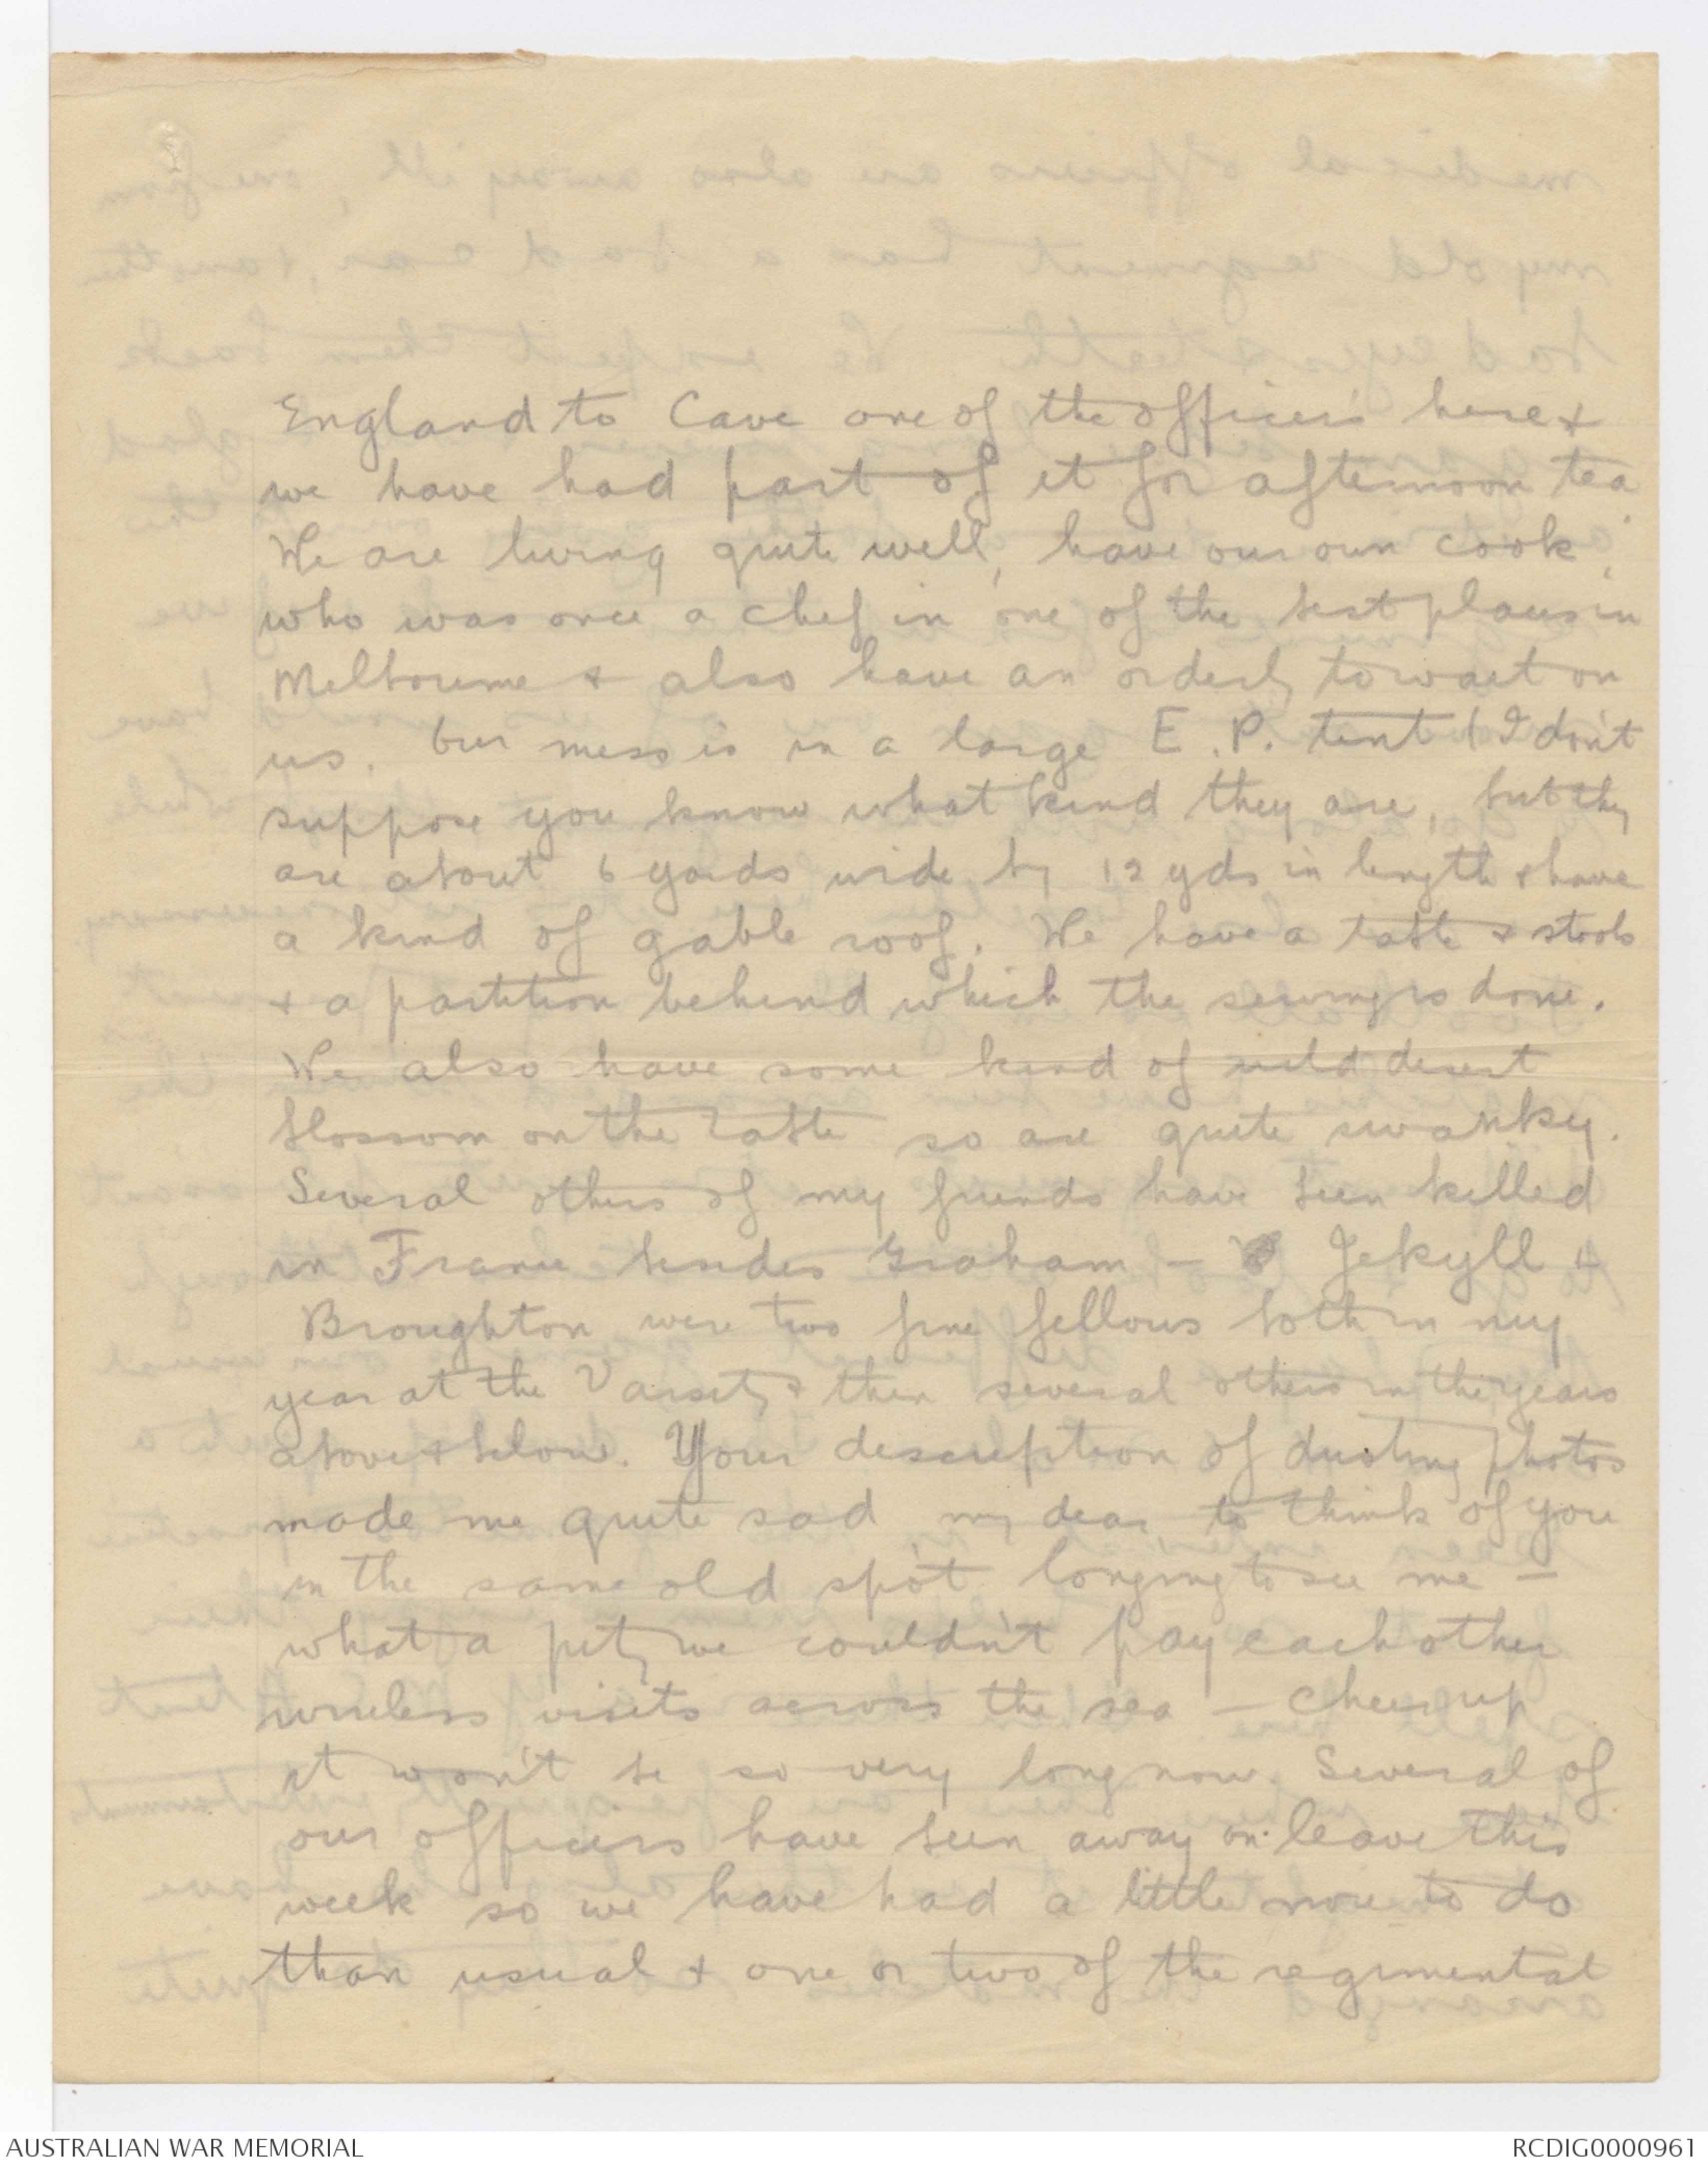 England to Cave one of the officers here &
we have had part of it for afternoon tea.
We are living quite well, have our own cook,
who was once a chef in one of the best places in
Melbourne & also have an orderly to wait on
us. Our mess is in a large E.P. tent (I don't
suppose you know what kind they are, but they
are about 6 yards wide by 12 yds in length & have
a kind of gable roof. We have a table & stools
& a partition behind which the serving is done.
We also have some kind of wild desert
blossom on the table so are quite swanky.
Several others of my friends have been killed
in France besides Graham - Jekyll &
Broughton were two fine fellows both in my
year at the Varsity & then several others in the years
above & below. Your description of dusting photos
made me quite sad my dear, to think of you
in the same old spot longing to see me -
what a pity we couldn't pay each other
wireless visits across the sea - Cheer up
it won't be so very long now. Several of
our officers have been away on leave this
week so we have had a little more to do
than usual & one or two of the regimental
AUSTRALIAN WAR MEMORIAL
RCDIG0000961